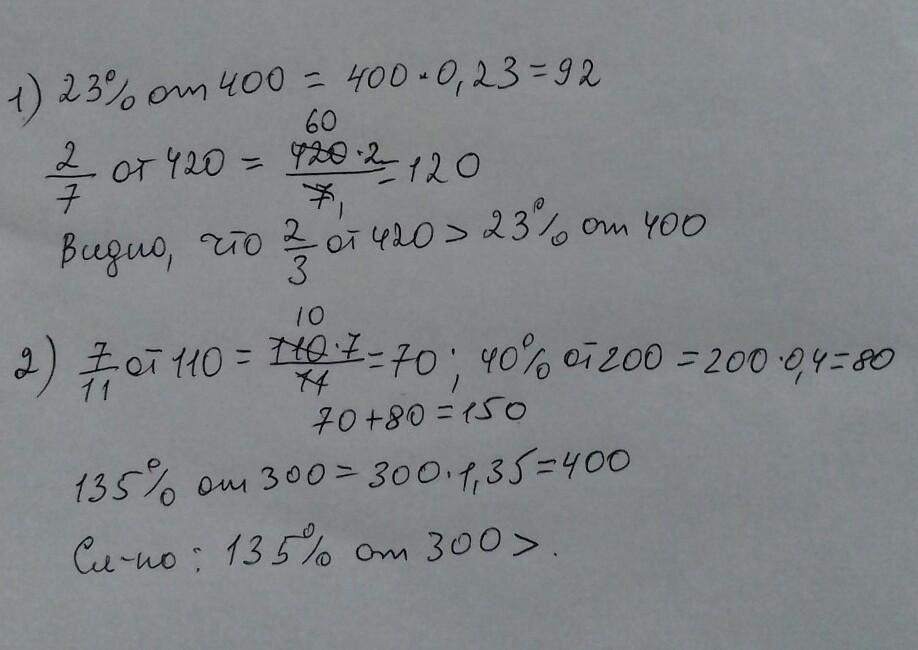 1) 23% от 400 = 400 · 0,23 = 92
60
2/7 от 420 = 420·2/7 1 = 120
Видно, что 2/3 от 420 > 23% от 400
10
2) 7/11 от 110 = 110·7/11 = 70 ; 40% от 200 = 200·0,4=80
70+80=150
135% от 300 = 300·1,35=400
Сл-но : 135% от 300 > .